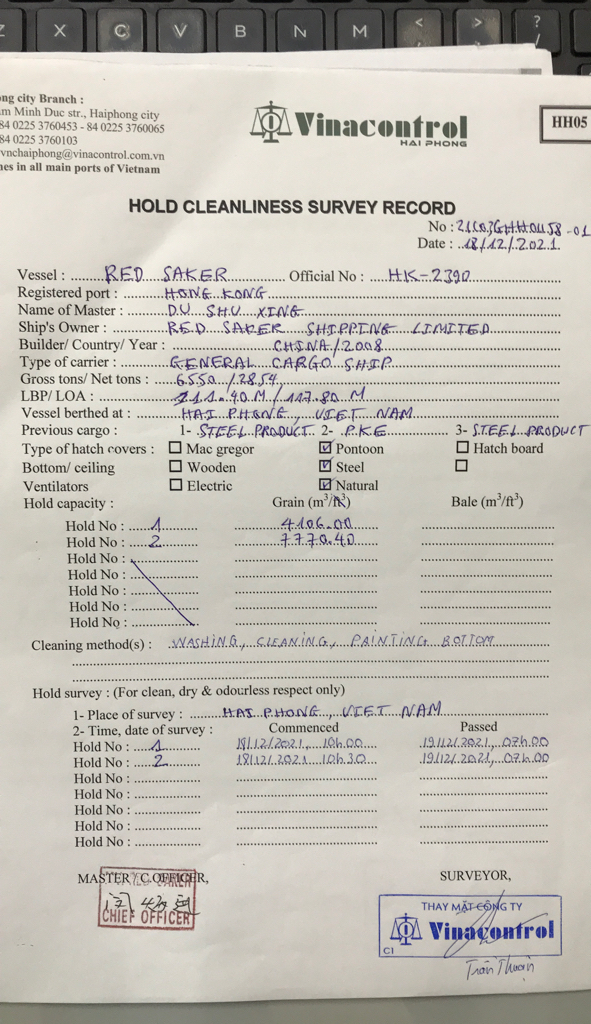 X C V B N M < > ?
ng city Branch :
m Minh Duc str., Haiphong city
84 0225 3760453 - 84 0225 3760065
84 0225 3760103
vnchaiphong@vinacontrol.com.vn
nes in all main ports of Vietnam
Vinacontrol
HAI PHONG
HH05
HOLD CLEANLINESS SURVEY RECORD
No :
Date : 18/12/2021
Vessel : RED SAKER Official No : HK-2390
Registered port : HONG KONG
Name of Master : DU SHU XING
Ship's Owner : RED SAKER SHIPPING LIMITED
Builder/ Country/ Year : CHINA/2008
Type of carrier : GENERAL CARGO SHIP
Gross tons/ Net tons : 6550 / 2854
LBP/ LOA : 111.40 M / 117.80 M
Vessel berthed at : HAI PHONG, VIET NAM
Previous cargo : 1- STEEL PRODUCT 2- PKE 3- STEEL PRODUCT
Type of hatch covers : Mac gregor Pontoon Hatch board
Bottom/ ceiling Wooden Steel
Ventilators Electric Natural
Hold capacity : Grain (m³/ft³) Bale (m³/ft³)
Hold No : 1 4106.00
Hold No : 2 7770.40
Hold No :
Hold No :
Hold No :
Hold No :
Hold No :
Cleaning method(s) : WASHING, CLEANING, PAINTING BOTTOM
Hold survey : (For clean, dry & odourless respect only)
1- Place of survey : HAI PHONG, VIET NAM
2- Time, date of survey : Commenced Passed
Hold No : 1 18/12/2021, 10h.00 19/12/2021, 07h.00
Hold No : 2 18/12/2021, 10h.30 19/12/2021, 07h.00
Hold No :
Hold No :
Hold No :
Hold No :
Hold No :
MASTER / C.OFFICER, SURVEYOR,
RED SAKER
CHIEF OFFICER
THAY MẶT CÔNG TY
Vinacontrol
CI
Trần